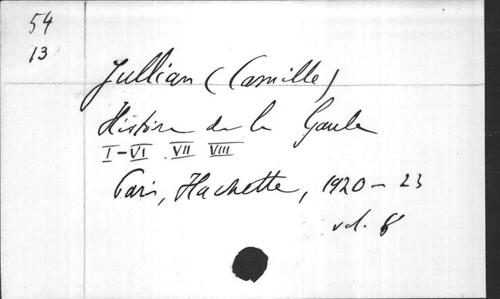 54
13
Jullian (Camille)
Histoire de la Gaule
I-VI VII VIII
Paris, Hachette, 1920-23
vol. 8